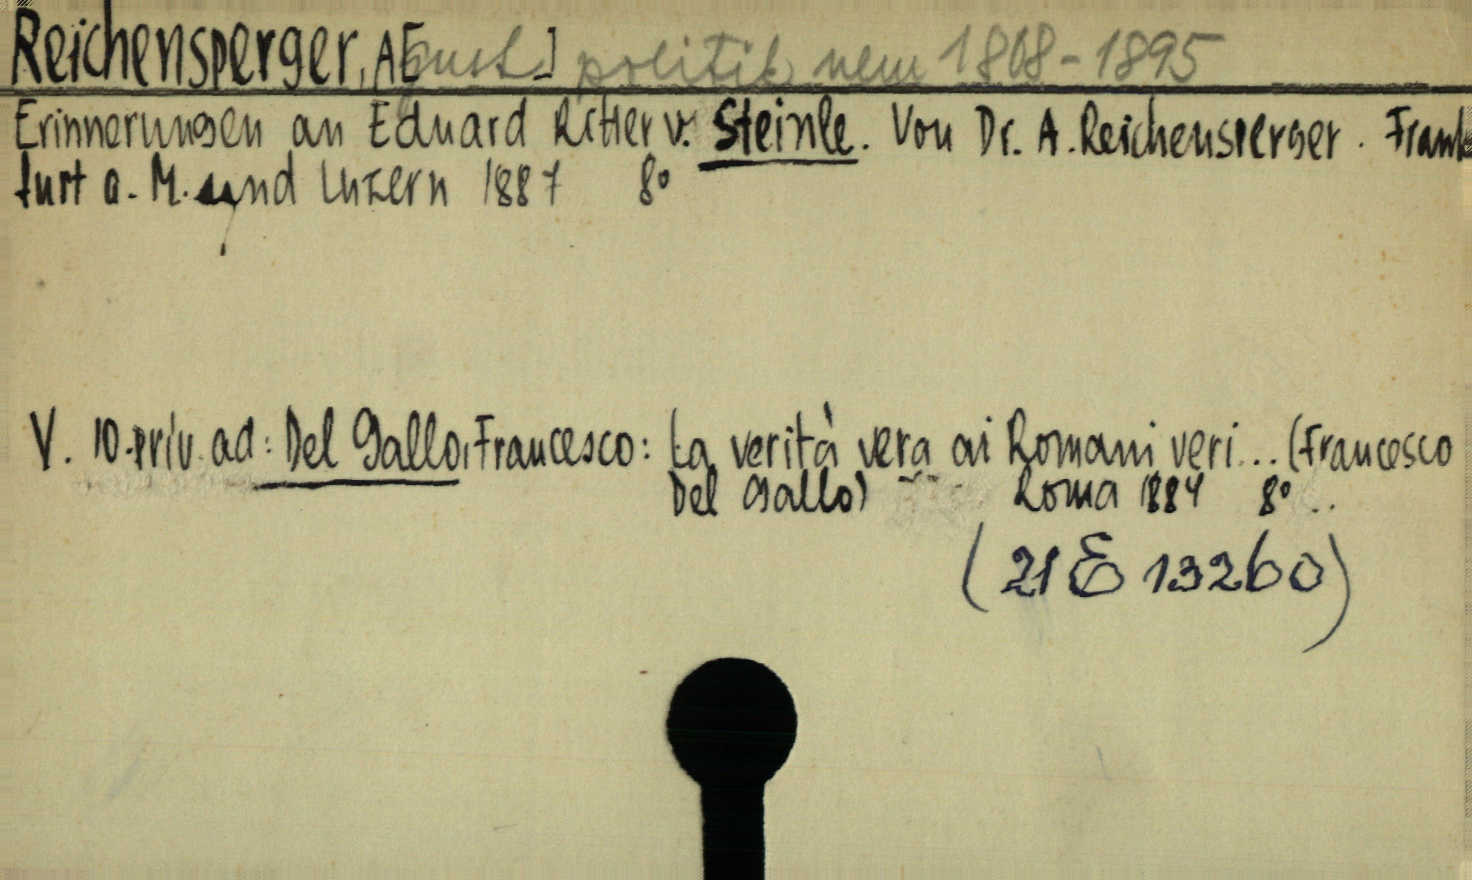 Reichensperger, A[ugust] politik nem 1808-1895
Erinnerungen an Eduard Ritter v. Steinle. Von Dr. A. Reichensperger. Frank
furt a. M. und Luzern 1887 8°
V. 10. priv. ad: Del Gallo, Francesco: La verità vera ai Romani veri... (Francesco
Del Gallo) --- Roma 1884 8° ..
(21 E 13260)